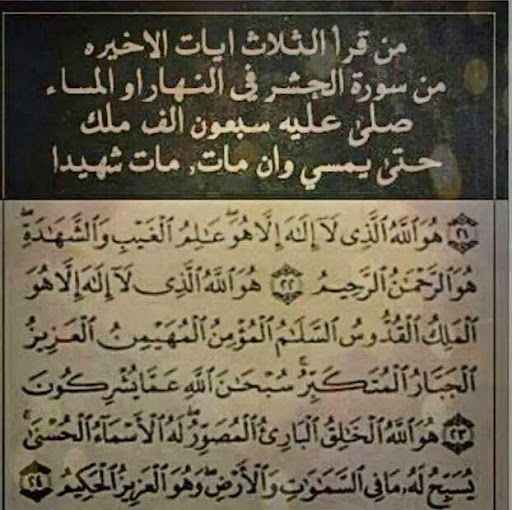 من قرأ الثلاث ايات الاخيره
من سورة الحشر في النهار او المساء
صلى عليه سبعون الف ملك
حتى يمسي وان مات, مات شهيدا
٢١ هُوَ ٱللَّهُ ٱلَّذِى لَآ إِلَٰهَ إِلَّا هُوَۖ عَٰلِمُ ٱلْغَيْبِ وَٱلشَّهَٰدَةِۖ
هُوَ ٱلرَّحْمَٰنُ ٱلرَّحِيمُ ٢٢ هُوَ ٱللَّهُ ٱلَّذِى لَآ إِلَٰهَ إِلَّا هُوَ
ٱلْمَلِكُ ٱلْقُدُّوسُ ٱلسَّلَٰمُ ٱلْمُؤْمِنُ ٱلْمُهَيْمِنُ ٱلْعَزِيزُ
ٱلْجَبَّارُ ٱلْمُتَكَبِّرُۚ سُبْحَٰنَ ٱللَّهِ عَمَّا يُشْرِكُونَ
٢٣ هُوَ ٱللَّهُ ٱلْخَٰلِقُ ٱلْبَارِئُ ٱلْمُصَوِّرُۖ لَهُ ٱلْأَسْمَآءُ ٱلْحُسْنَىٰۚ
يُسَبِّحُ لَهُۥ مَا فِى ٱلسَّمَٰوَٰتِ وَٱلْأَرْضِۖ وَهُوَ ٱلْعَزِيزُ ٱلْحَكِيمُ ٢٤